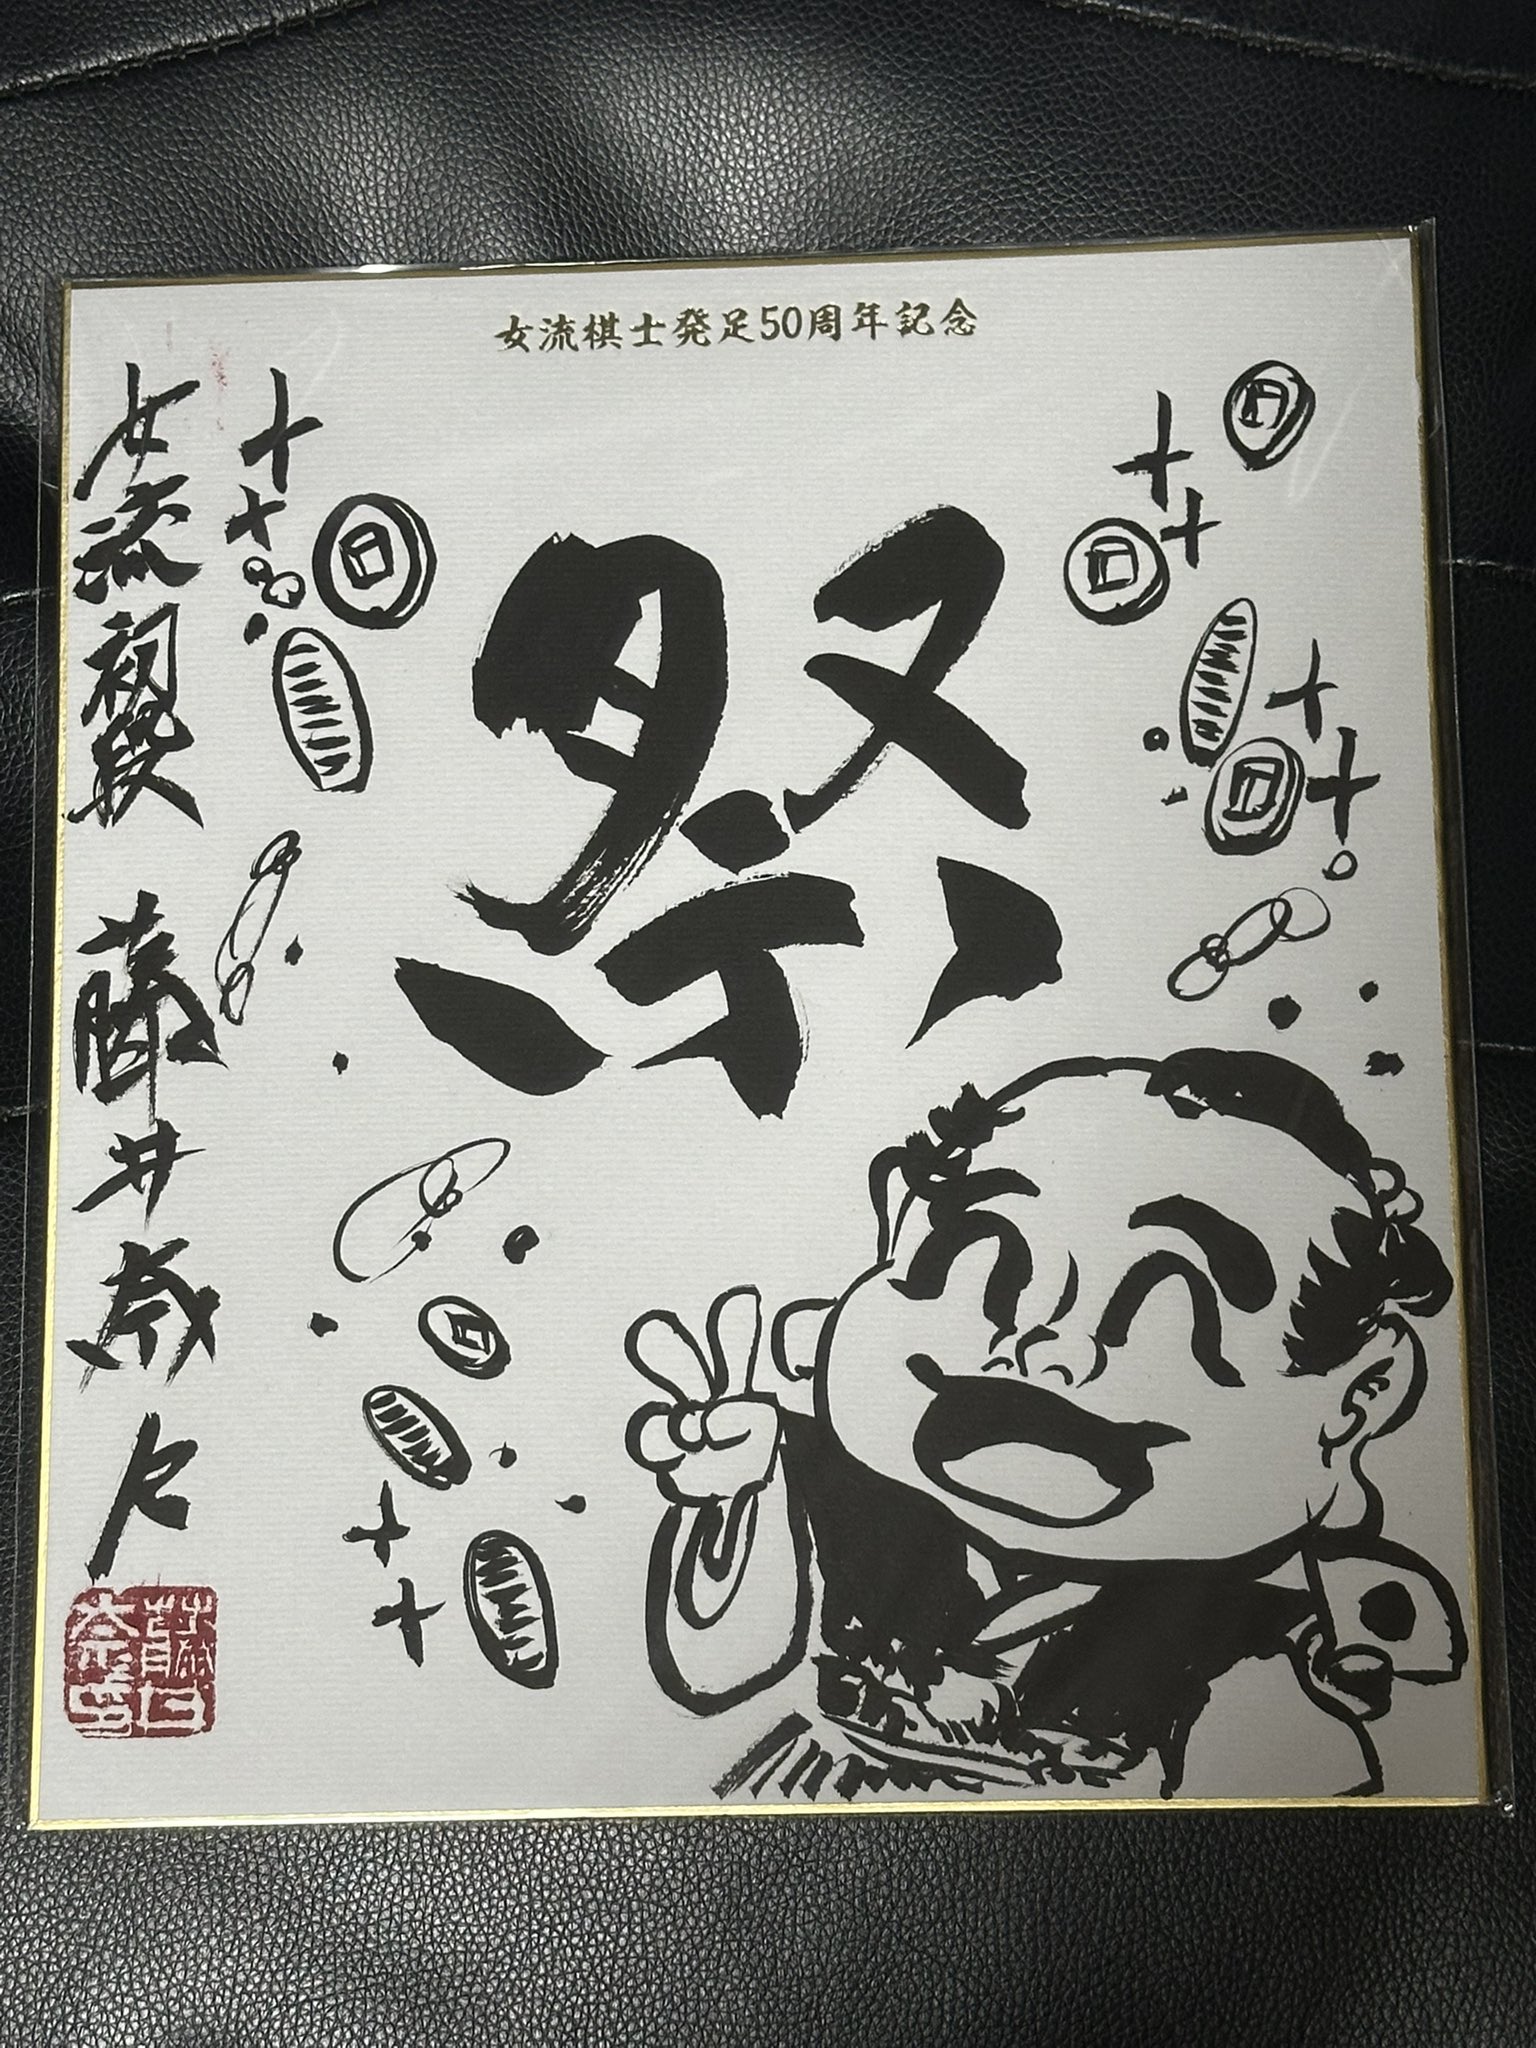 女流棋士発足50周年記念
祭
女流初段 藤井奈々
藤井
奈々